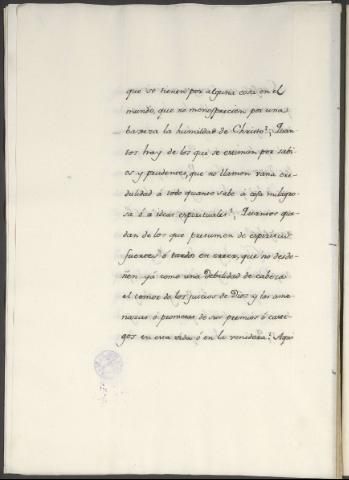 que se tienen por alguna cosa en el
mundo, que no menosprecien por una
baxeza la humildad de Christo? Quan-
tos hay de los que se estiman por sabi-
os y prudentes, que no llamen vana cre-
dulidad á todo quanto sabe á cosa milagro-
sa ó á ideas espirituales? Quantos que-
dan de los que presumen de espiritus
fuertes ó tardos en creer, que no desde-
ñen yá como una debilidad de cabeza
el temor de los juicios de Dios y las ame-
nazas ó promesas de sus premios ó casti-
gos en esta vida ó en la venidera? Aqui